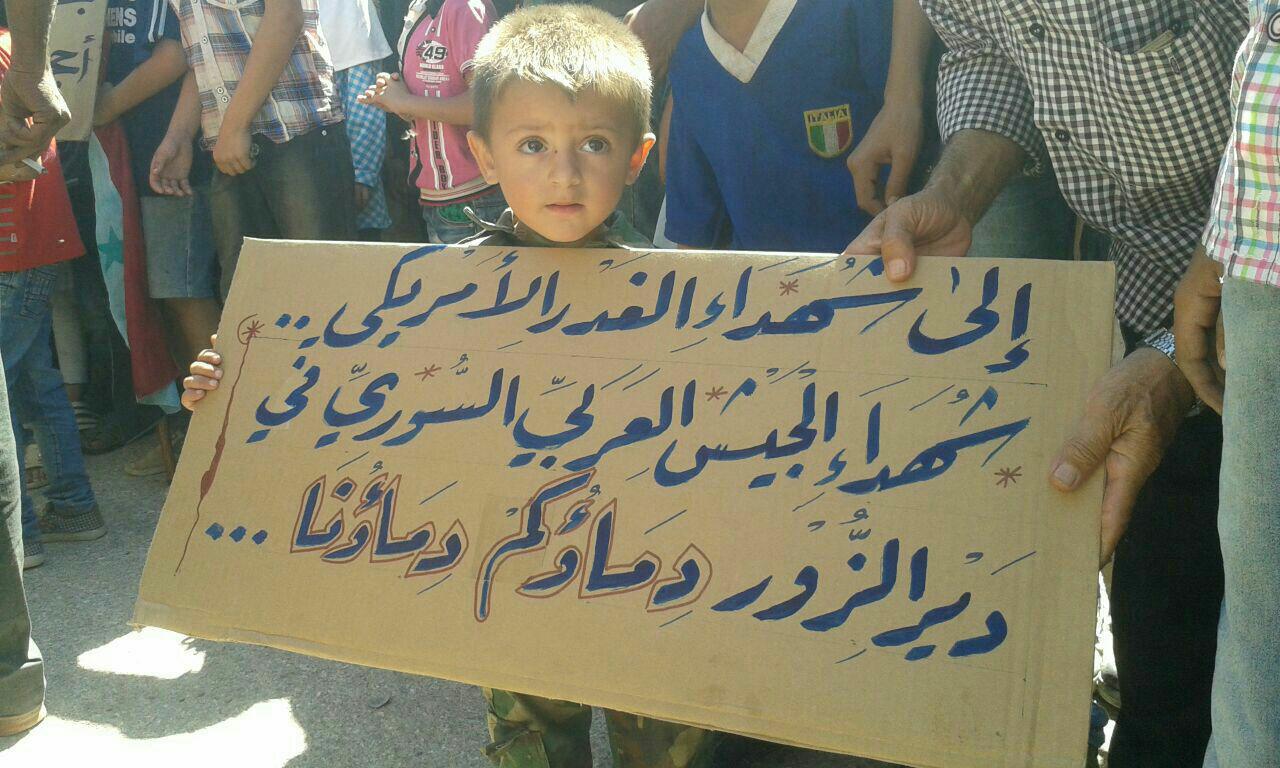 إلىٰ شُهَدَاءِ الغَدْرِ الأَمْرِيكي ..
شُهَدَاءِ الْجَيْشِ العَرَبيِّ السُّوريِّ في
دَيْرِ الزُّورِ دِمَاؤُكُمْ دِمَاؤُنَا ...
ITALIA
49